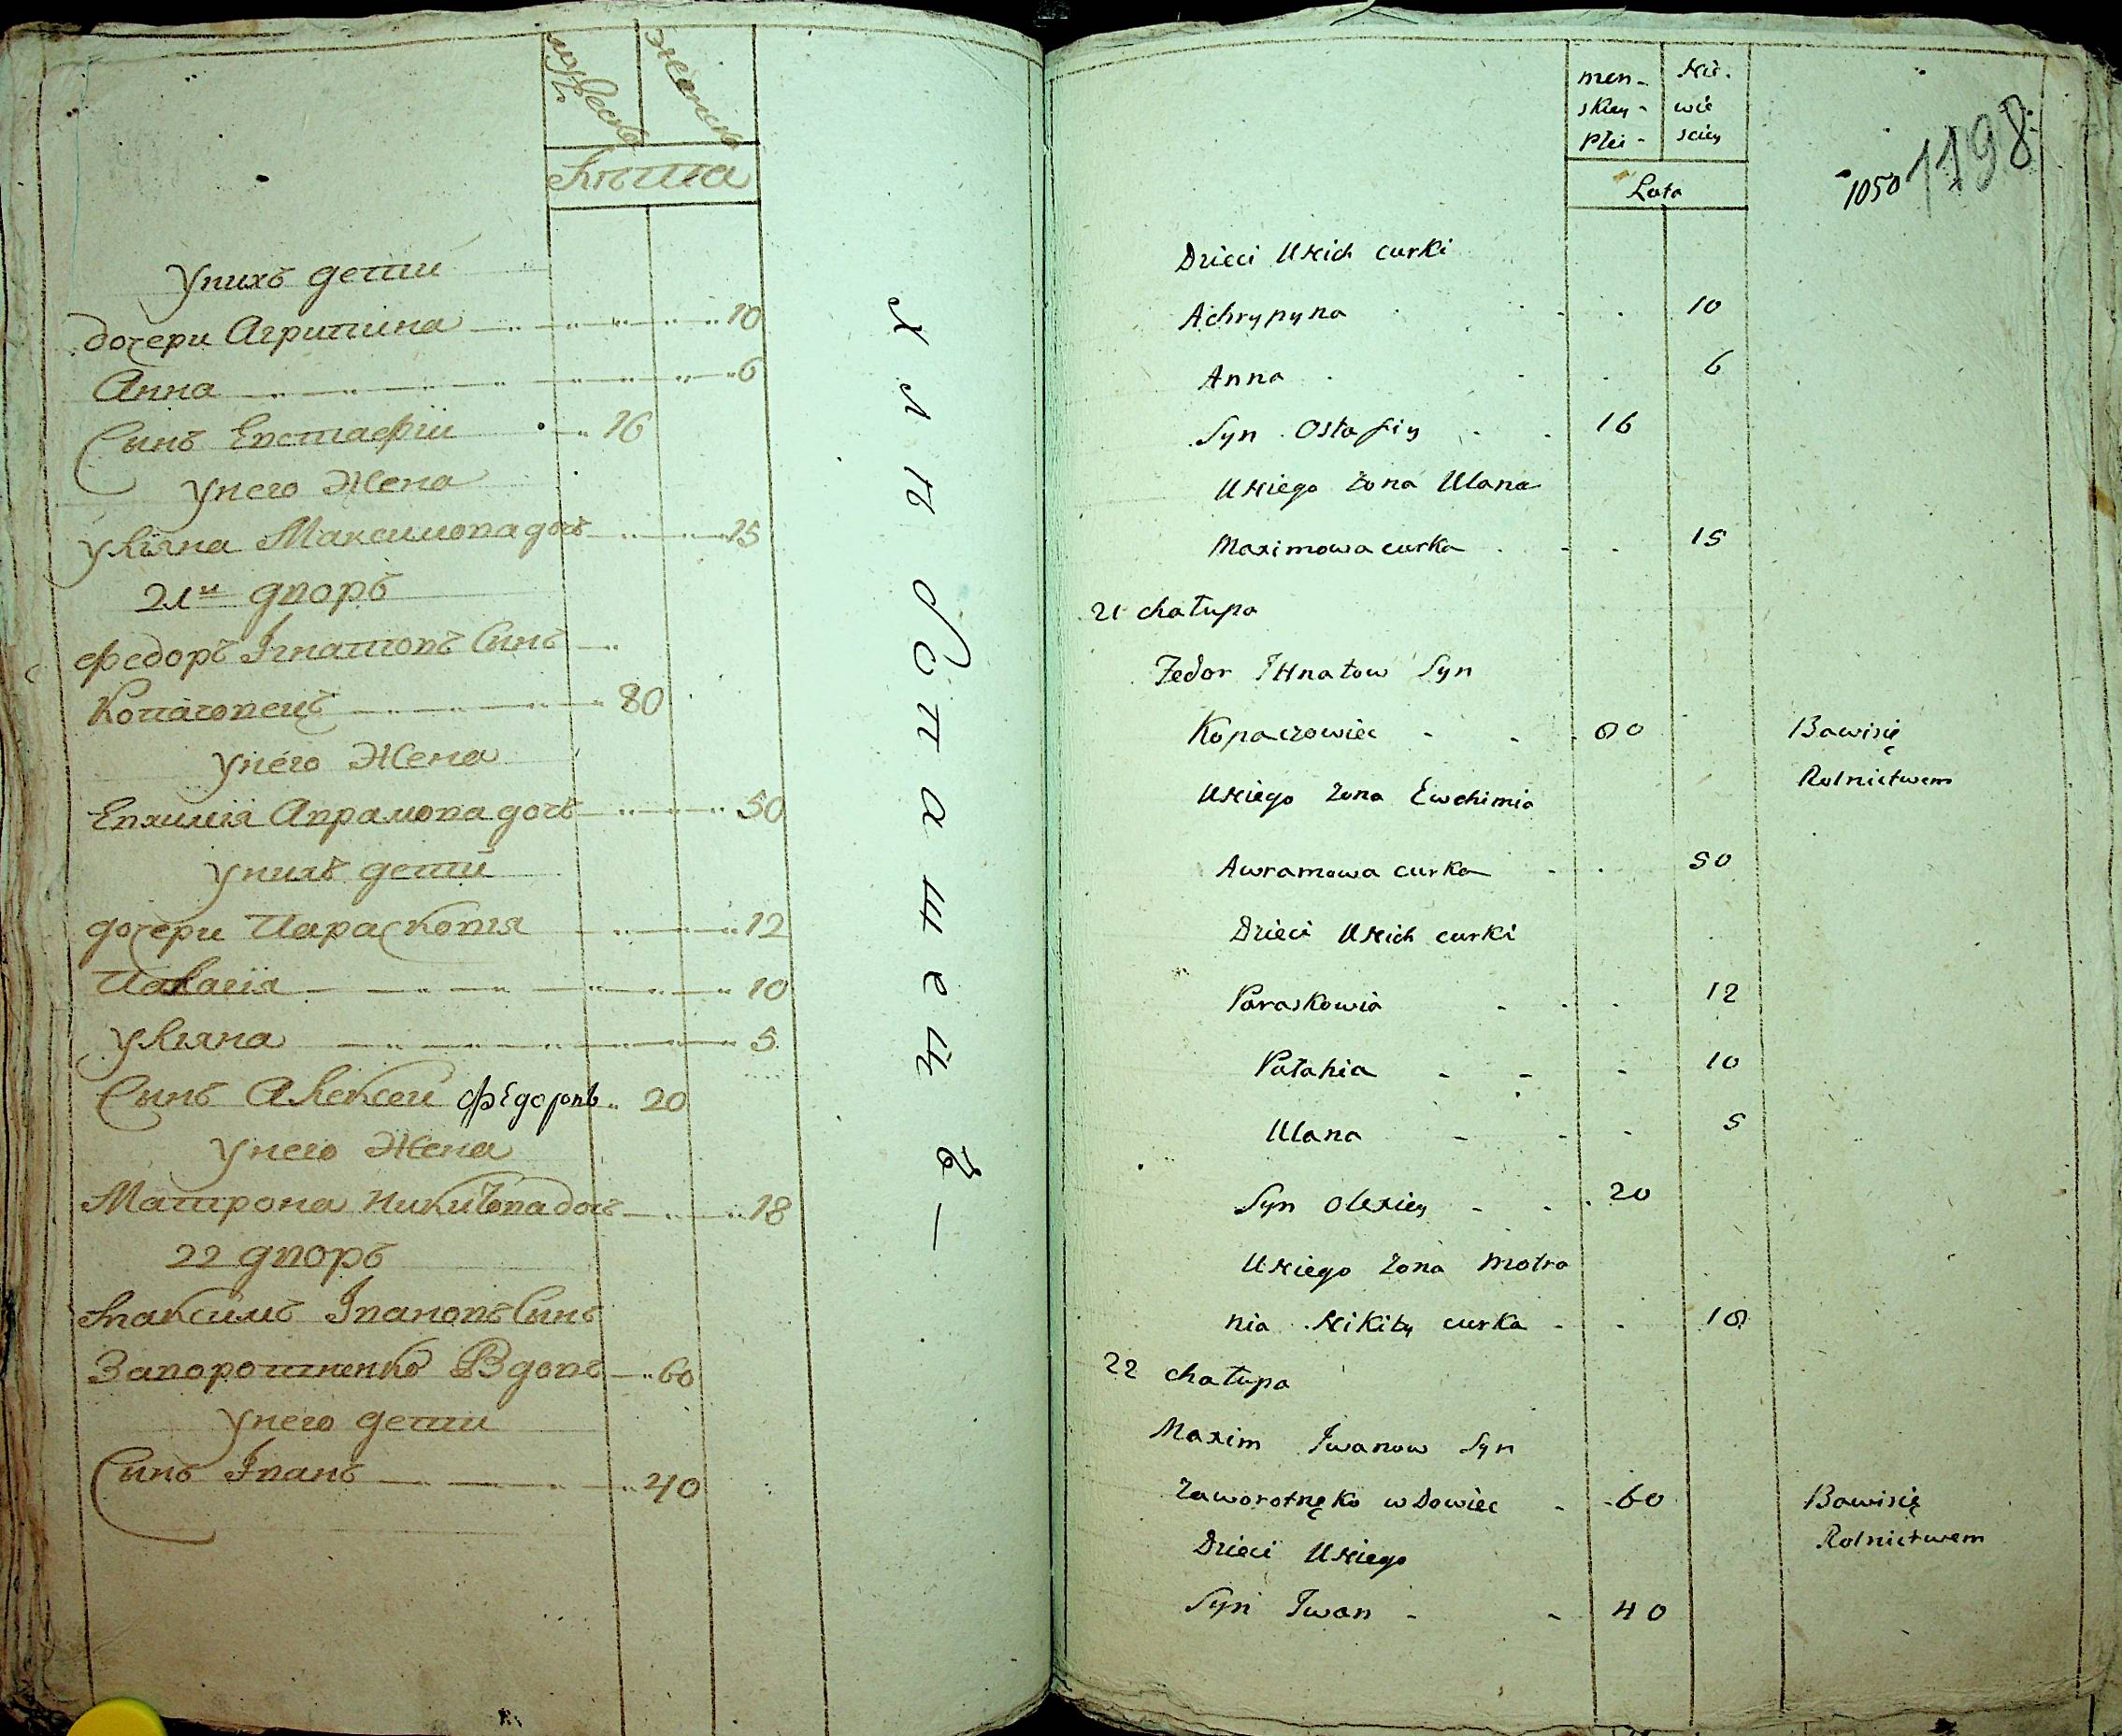 мужеска
женска
Лѣта
У нихъ дети
дочери Агрипина 10
Анна 6
Сынъ Евстафіи 16
У него Жена
Улїяна Максимова дочь 15
21й дворъ
Федоръ Iгнатовъ Сынъ
Копачовецъ 80
У него Жена
Евхимія Аврамова дочь 50
У нихъ дети
дочери Параскопія 12
Палагія 10
Улїяна 5
Сынъ Алексеи Фѣдоровъ 20
У него Жена
Матрона Никитова дочь 18
22 дворъ
Максимъ Iвановъ Сынъ
Заворотненко Вдовъ 60
У него дети
Сынъ Iванъ 40
men- Nie-
skiey- wie
Płci- sciey
Lata
1050 1198
Dzieci U Nich curki
Achrypyna 10
Anna 6
Syn Ostafiy 16
U Niego Żona Ulana
Maximowa curka 15
21 chałupa
Fedor IHnatow Syn
Kopaczowiec 80 Bawi się
Rolnictwem
U Niego Żona Ewchimia
Awramowa curka 50
Dzieci U Nich curki
Paraskowia 12
Pałahia 10
Ulana 5
Syn Olexiey 20
U Niego Żona Motro
nia Nikity curka 18
22 chałupa
Maxim Iwanow Syn
Zaworotnęko wdowiec 60 Bawi się
Rolnictwem
Dzieci U Niego
Syn Iwan 40